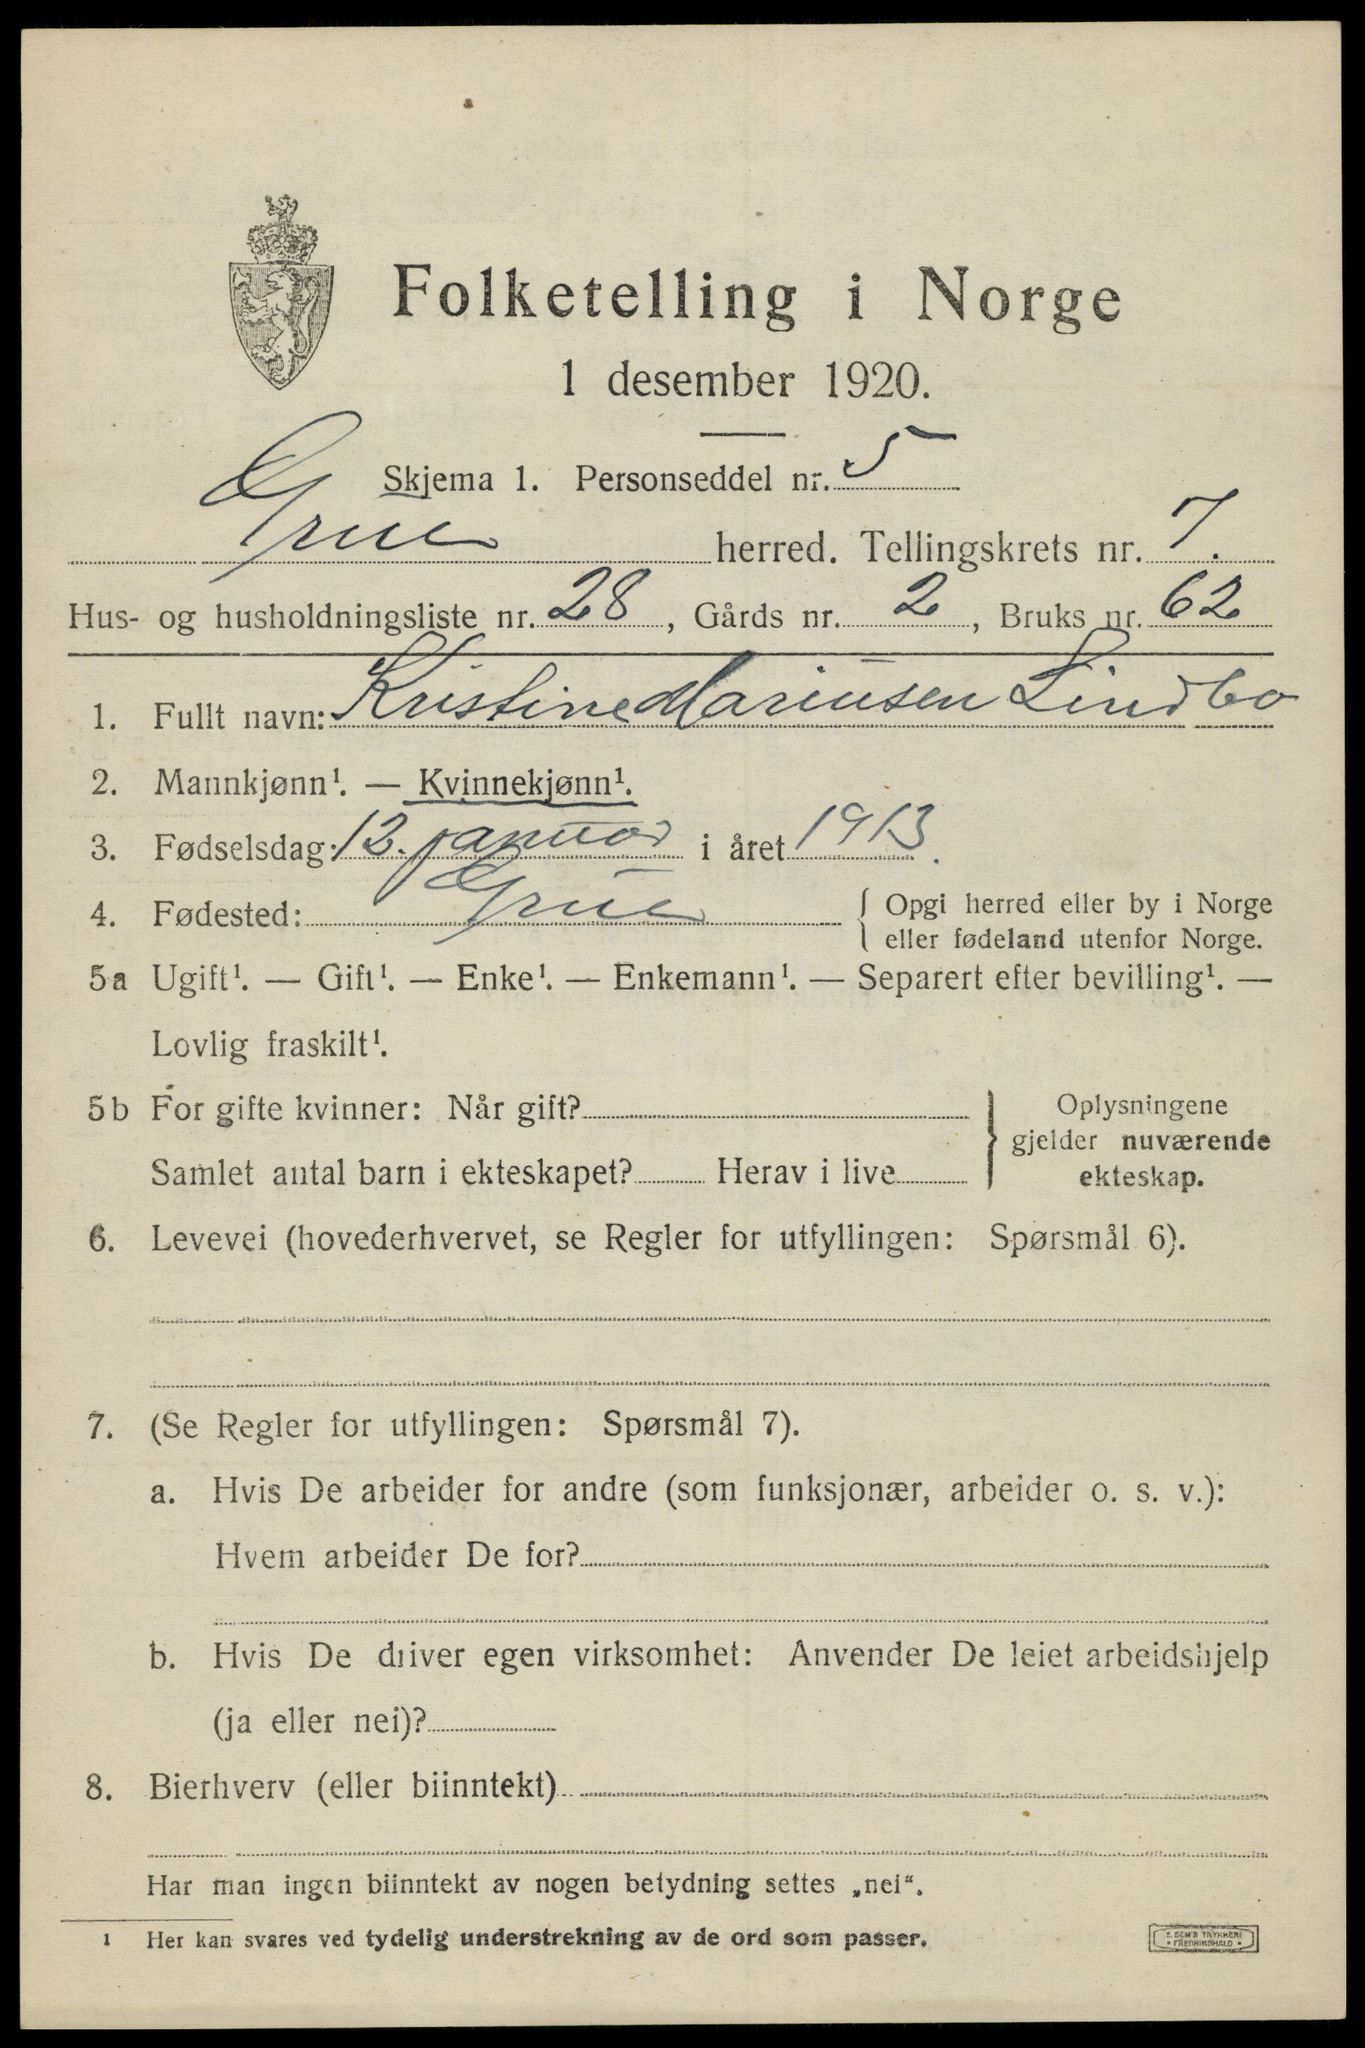 Folketelling i Norge
1 desember 1920.
Skjema 1. Personseddel nr. 5
Grue herred. Tellingskrets nr. 7.
Hus- og husholdningsliste nr. 28, Gårds nr. 2, Bruks nr. 62
1. Fullt navn: Kristine Mariusen Lindbo
2. Mannkjønn¹. — Kvinnekjønn¹.
3. Fødselsdag: 12. januar i året 1913.
4. Fødested: Grue { Opgi herred eller by i Norge
eller fødeland utenfor Norge.
5a Ugift¹. — Gift¹. — Enke¹. — Enkemann¹. — Separert efter bevilling¹. —
Lovlig fraskilt¹.
5b For gifte kvinner: Når gift? } Oplysningene
gjelder nuværende
Samlet antal barn i ekteskapet? Herav i live ekteskap.
6. Levevei (hovederhvervet, se Regler for utfyllingen: Spørsmål 6).
7. (Se Regler for utfyllingen: Spørsmål 7).
a. Hvis De arbeider for andre (som funksjonær, arbeider o. s. v.):
Hvem arbeider De for?
b. Hvis De driver egen virksomhet: Anvender De leiet arbeidshjelp
(ja eller nei)?
8. Bierhverv (eller biinntekt)
Har man ingen biinntekt av nogen betydning settes „nei“.
1 Her kan svares ved tydelig understrekning av de ord som passer.
FREDRIKSHALD